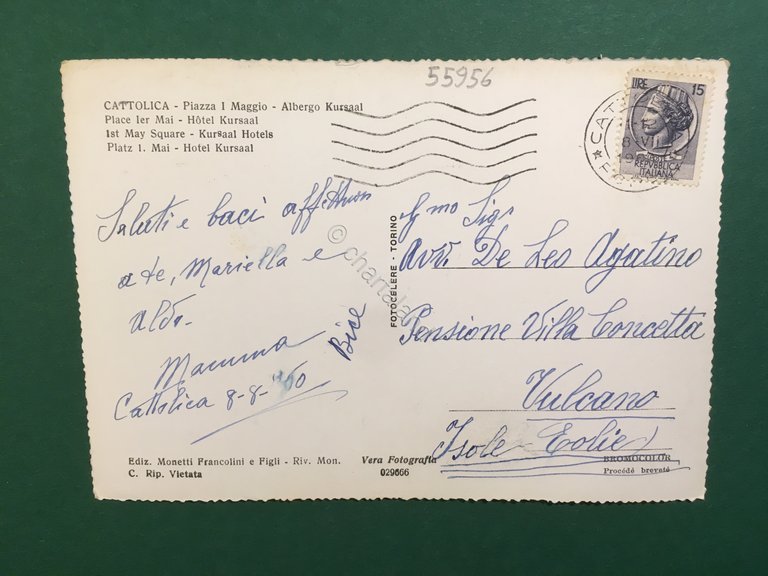 55956
CATTOLICA - Piazza I Maggio - Albergo Kursaal
Place Ier Mai - Hôtel Kursaal
1st May Square - Kursaal Hotels
Platz 1. Mai - Hotel Kursaal
LIRE 15
REPVBBLICA
ITALIANA
Saluti e baci affettuosi
a te, Mariella e
Aldo.
Mamma
Bice
Cattolica 8-8-960
FOTOCELERE - TORINO
Ill mo Sigr
Avv. De Leo Agatino
Pensione Villa Concetta
Vulcano
Isole Eolie
Ediz. Monetti Francolini e Figli - Riv. Mon.
C. Rip. Vietata
Vera Fotografia
029666
BROMOCOLOR
Procédé breveté